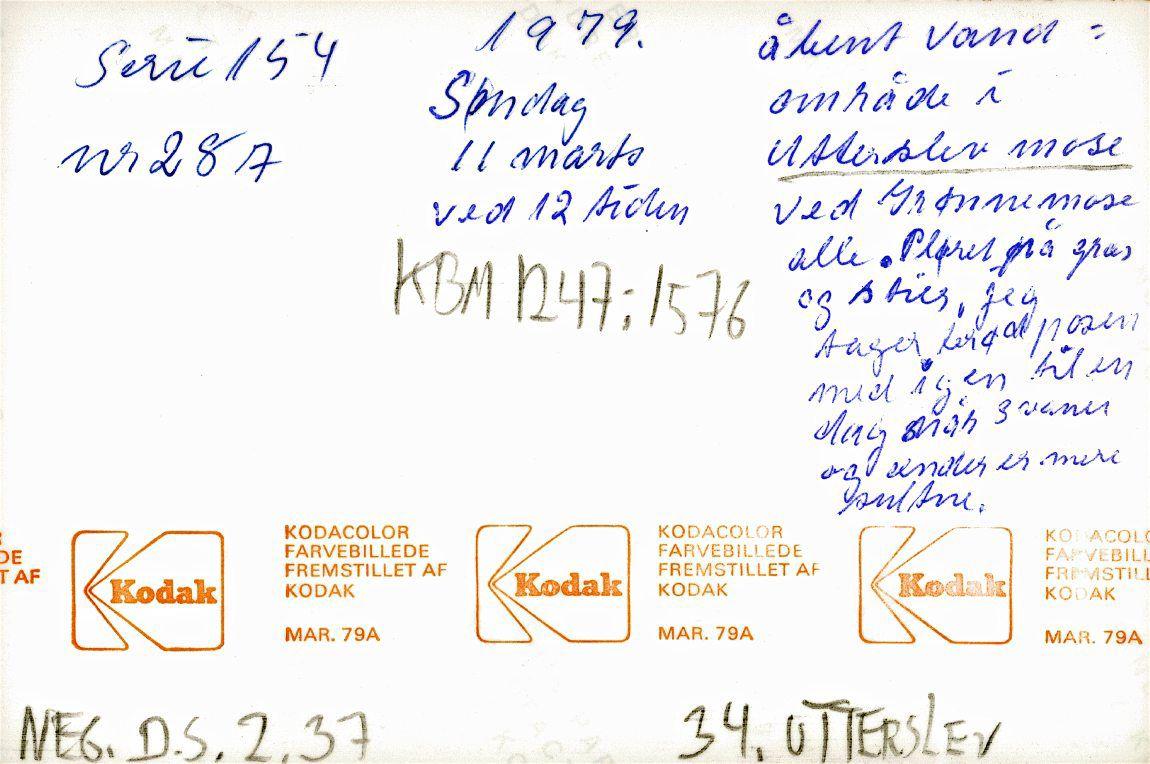 Serie 154
nr 28 A
1979.
Søndag
11 marts
ved 12 tiden
KBM 1247:1576
åbent vand =
område i
Utterslev mose
ved Grønnemose
alle. Pløret på græs
og stier. Jeg
tager brød posen
med igen til en
dag når svaner
og ænder er mere
sultne.
DE
T AF
Kodak
KODACOLOR
FARVEBILLEDE
FREMSTILLET AF
KODAK
MAR. 79A
Kodak
KODACOLOR
FARVEBILLEDE
FREMSTILLET AF
KODAK
MAR. 79A
Kodak
KODACOLO
FARVEBILL
FREMSTILL
KODAK
MAR. 79A
NEG. D.S. 2, 37
34. UTTERSLEV